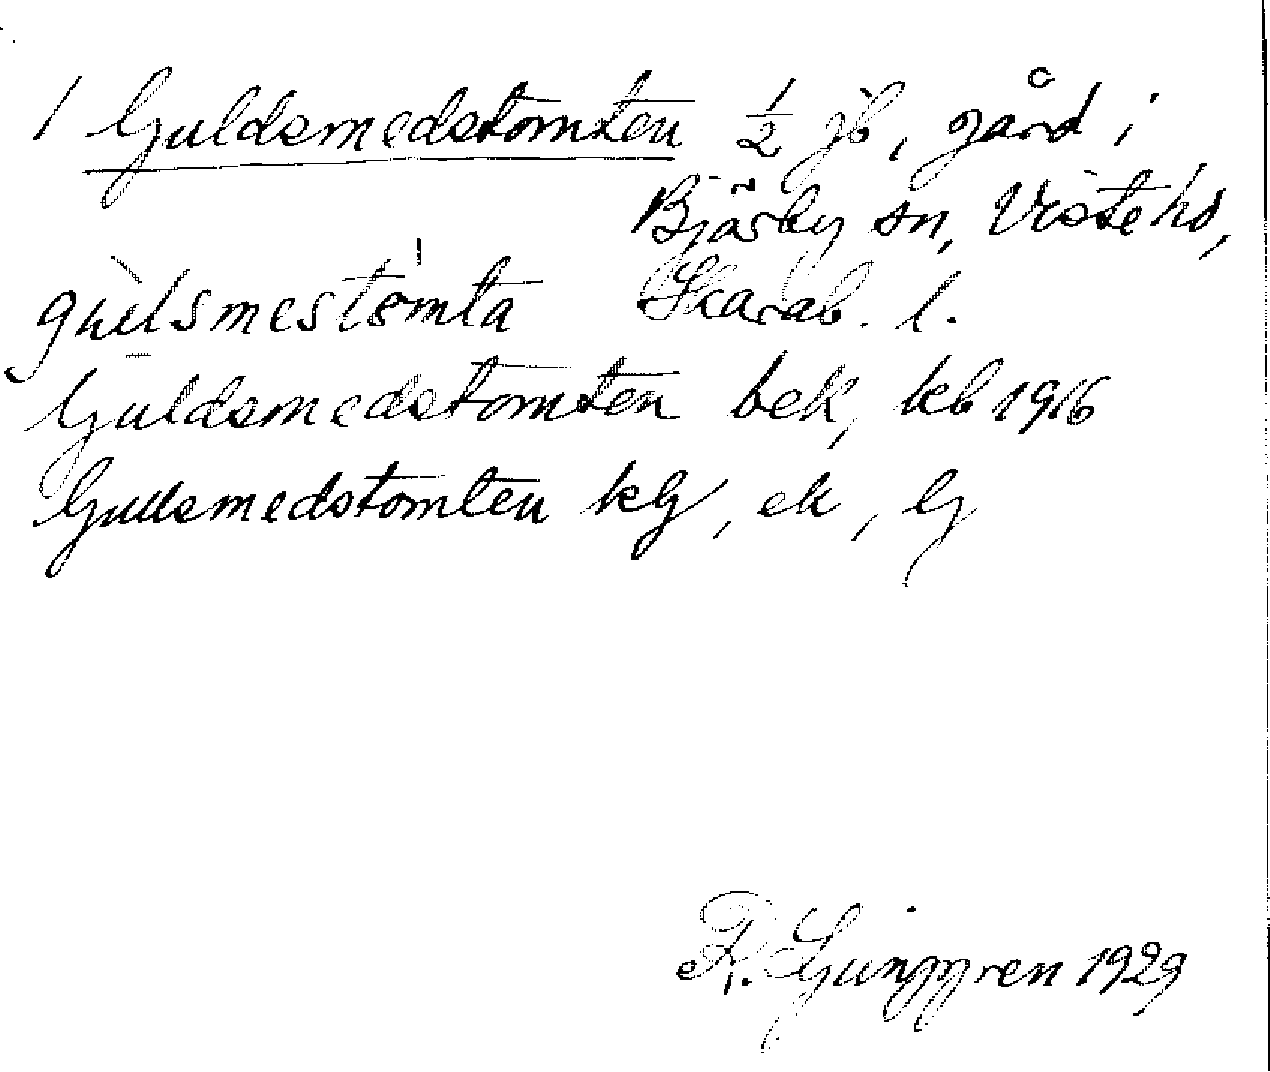 1 Guldsmedstomten 1/2 jb, gård i
Bjärby sn, Viste hd,
gùlsmestò̀mta Skarab. l.
Guldsmedstomten bek, kb 1916
Gullsmedstomten kg, ek, lg
R. Ljunggren 1929